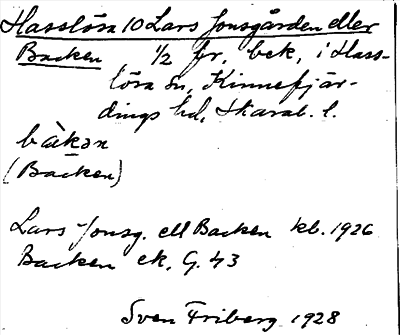 Hasslösa 10 Lars Jonsgården eller
Backen 1/2 fr, bek, i Hass-
lösa sn, Kinnefjär-
dings hd, Skarab. l.
bàkan
(Backen)
Lars Jonsg. ell Backen kb. 1926
Backen ek, G. 43
Sven Friberg 1928